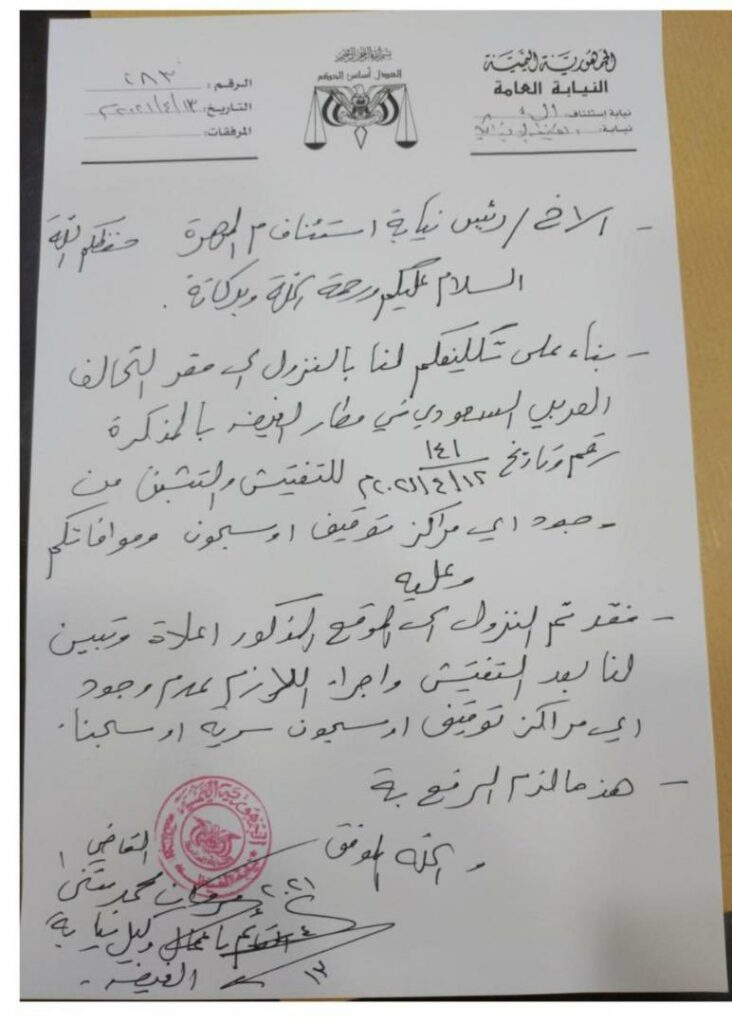 الجمهورية اليمنية
النيابة العامة
نيابة إستئناف:
نيابة:
بسم الله الرحمن الرحيم
العدل أساس الحكم
الرقم: ٢٨٣
التاريخ: ٢٠٢١/٤/١٣
المرفقات:
- الاخ / رئيس نيابة استئناف م المهرة حفظكم الله
السلام عليكم ورحمة الله وبركاتة .
- بناء على تكليفكم لنا بالنزول الى مقر التحالف
العربي السعودي في مطار الغيضه بالمذكرة
رقم وتاريخ ١٤١ / ٢٠٢١/٤/١٢م للتفتيش والتثبت من
وجود اي مراكز توقيف او سجون وموافاتكم
وعليه
- فقد تم النزول الى الموقع المذكور اعلاة وتبين
لنا بعد التفتيش واجراء اللازم عدم وجود
اي مراكز توقيف او سجون سريه او سجناء.
- هذ مالزم الرفع بة
و الله الموفق
القاضي /
محمد مثنى
القائم باعمال وكيل نيابة
الغيضه .
٢٠٢١
٤
١٣
الجمهورية اليمنية